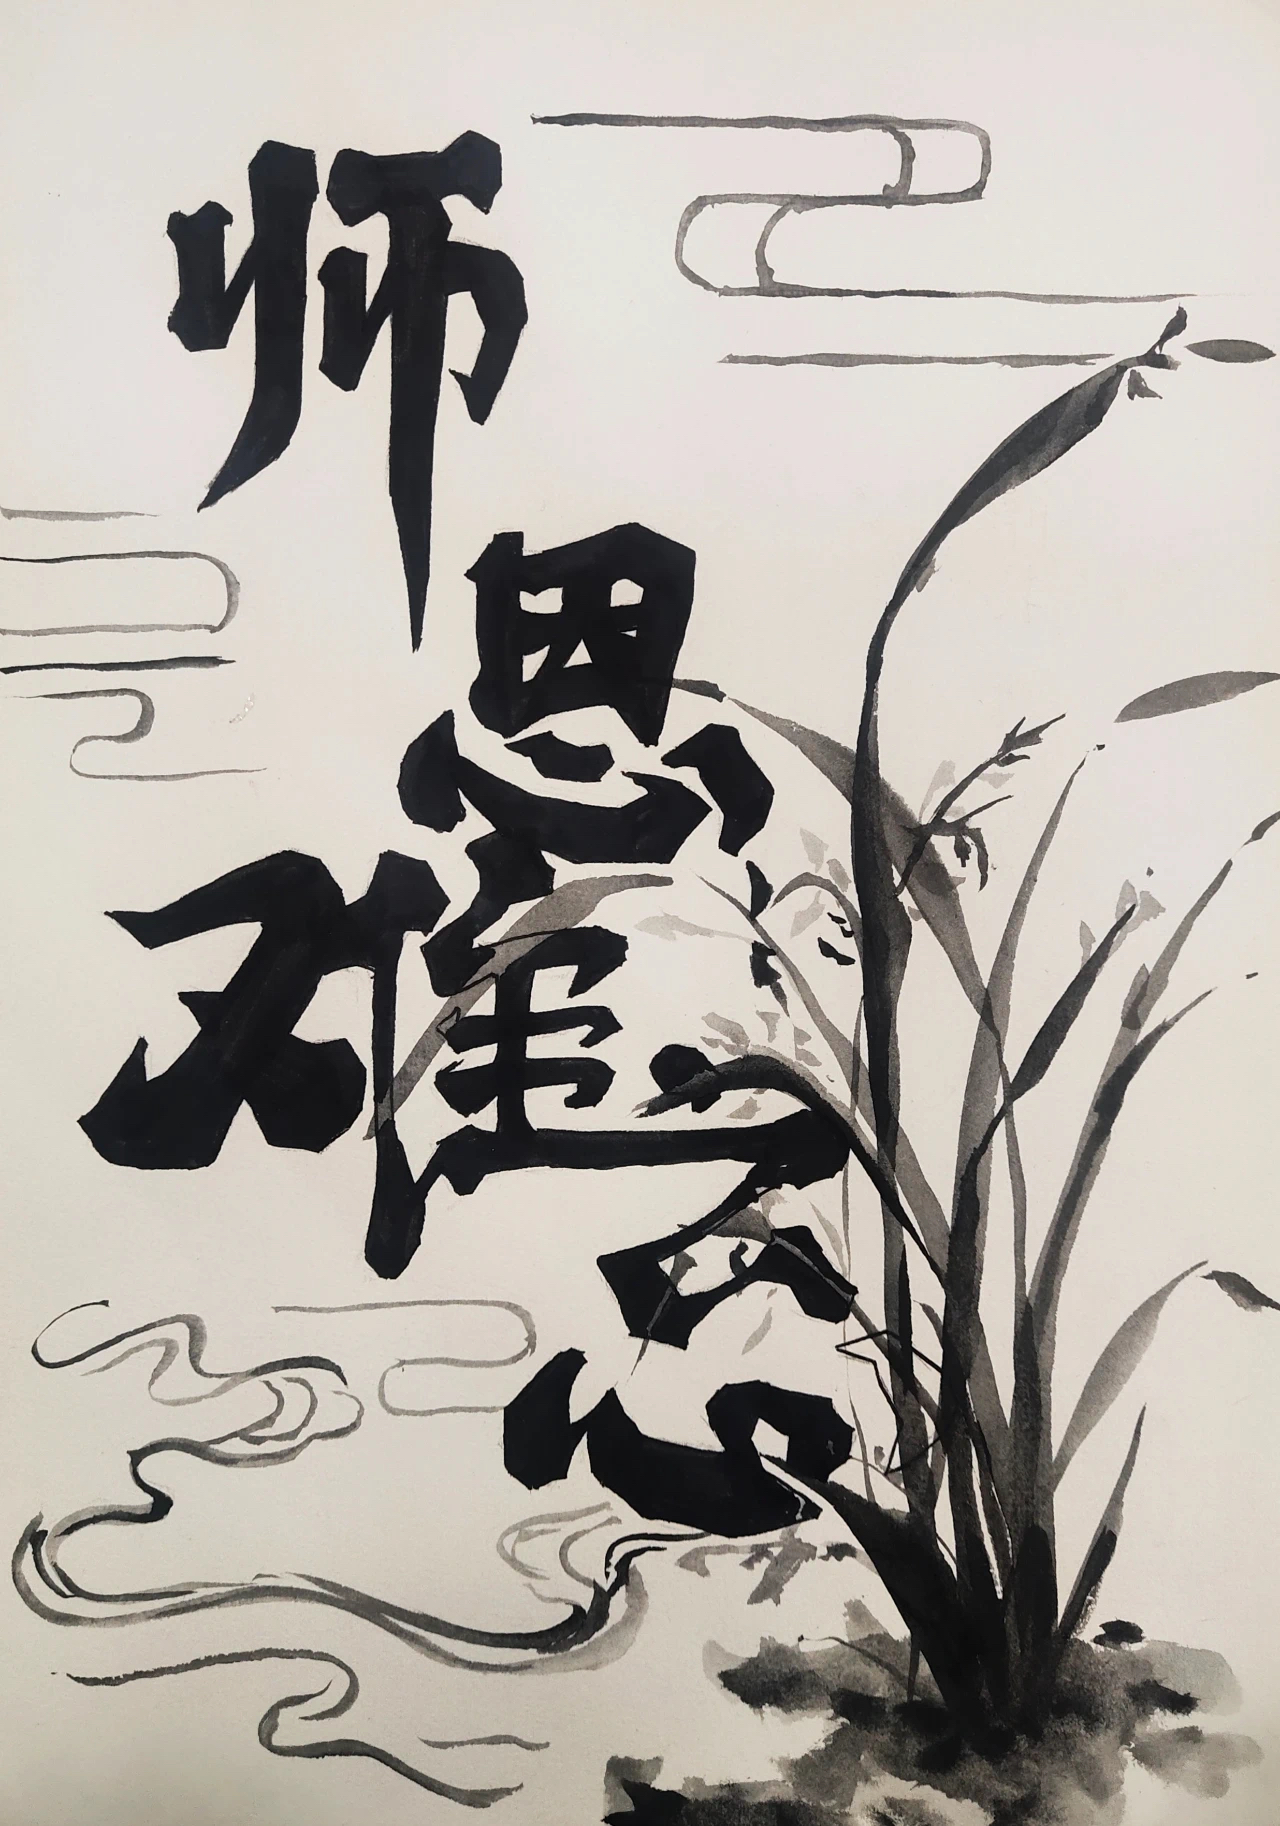 师
恩
难
忘